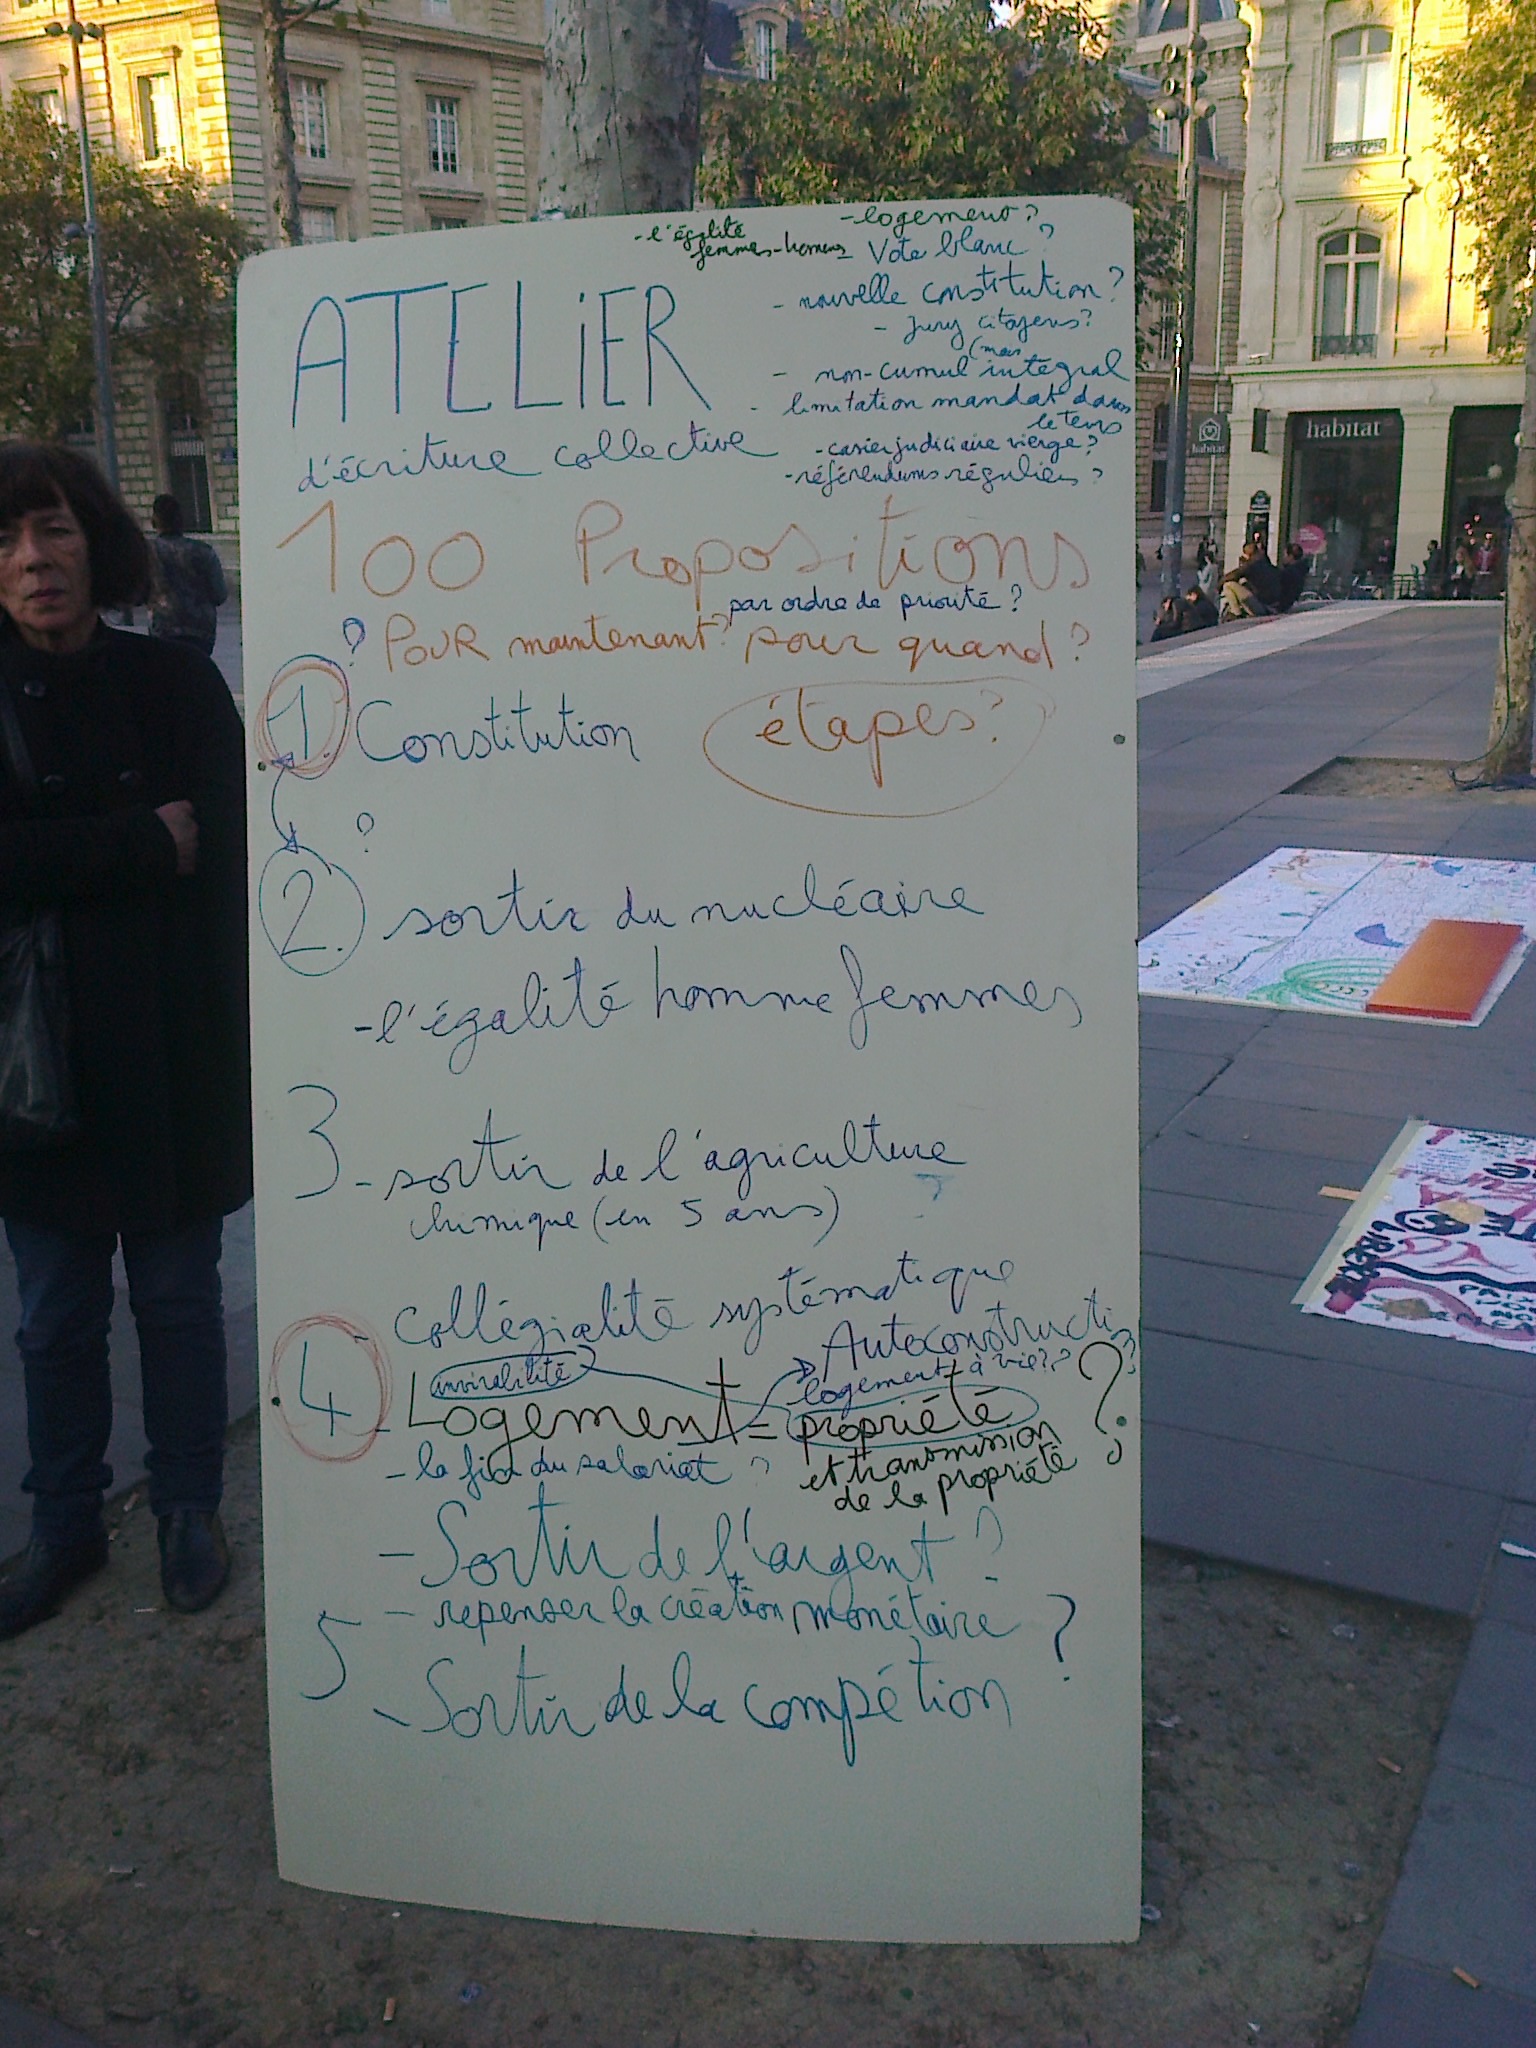 - l'égalité
femmes-hommes
- logement ?
- Vote blanc ?
- nouvelle constitution ?
- Jury citoyens ?
- non-cumul intégral
- limitation mandat dans
le tems
- casier judiciaire vierge ?
- référendums réguliers ?
ATELiER
d'écriture collective
100 Propositions
par ordre de priorité ?
? POUR maintenant ? pour quand ?
1. Constitution
étapes ?
?
2. sortir du nucléaire
- l'égalité homme femmes
3 - sortir de l'agriculture
chimique (en 5 ans)
- Collégialité systématique
Autoconstructi
logement à vie ? ?
4 - Logement = propriété ?
et transmission
de la propriété
- la fin du salariat ?
- Sortir de l'argent ?
5 - repenser la création monétaire ?
- Sortir de la compétion
habitat
habitat